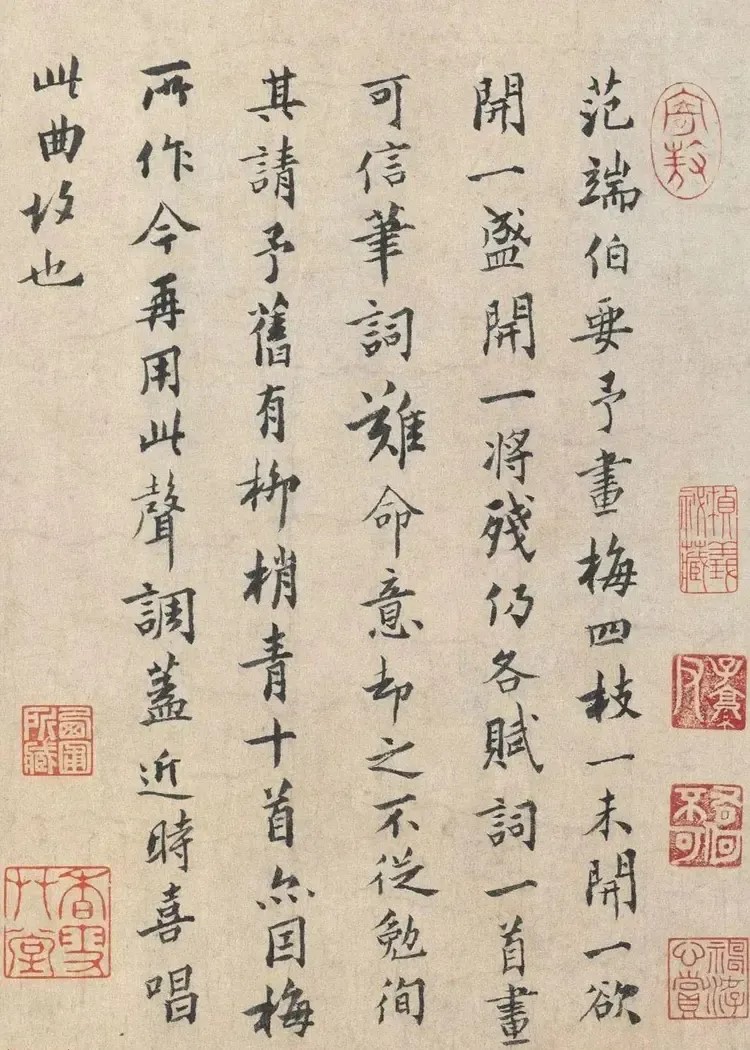 范端伯要予畫梅四枝一未開一欲
開一盛開一將殘仍各賦詞一首畫
可信筆詞難命意却之不從勉徇
其請予舊有柳梢青十首亦因梅
所作今再用此聲調蓋近時喜唱
此曲故也